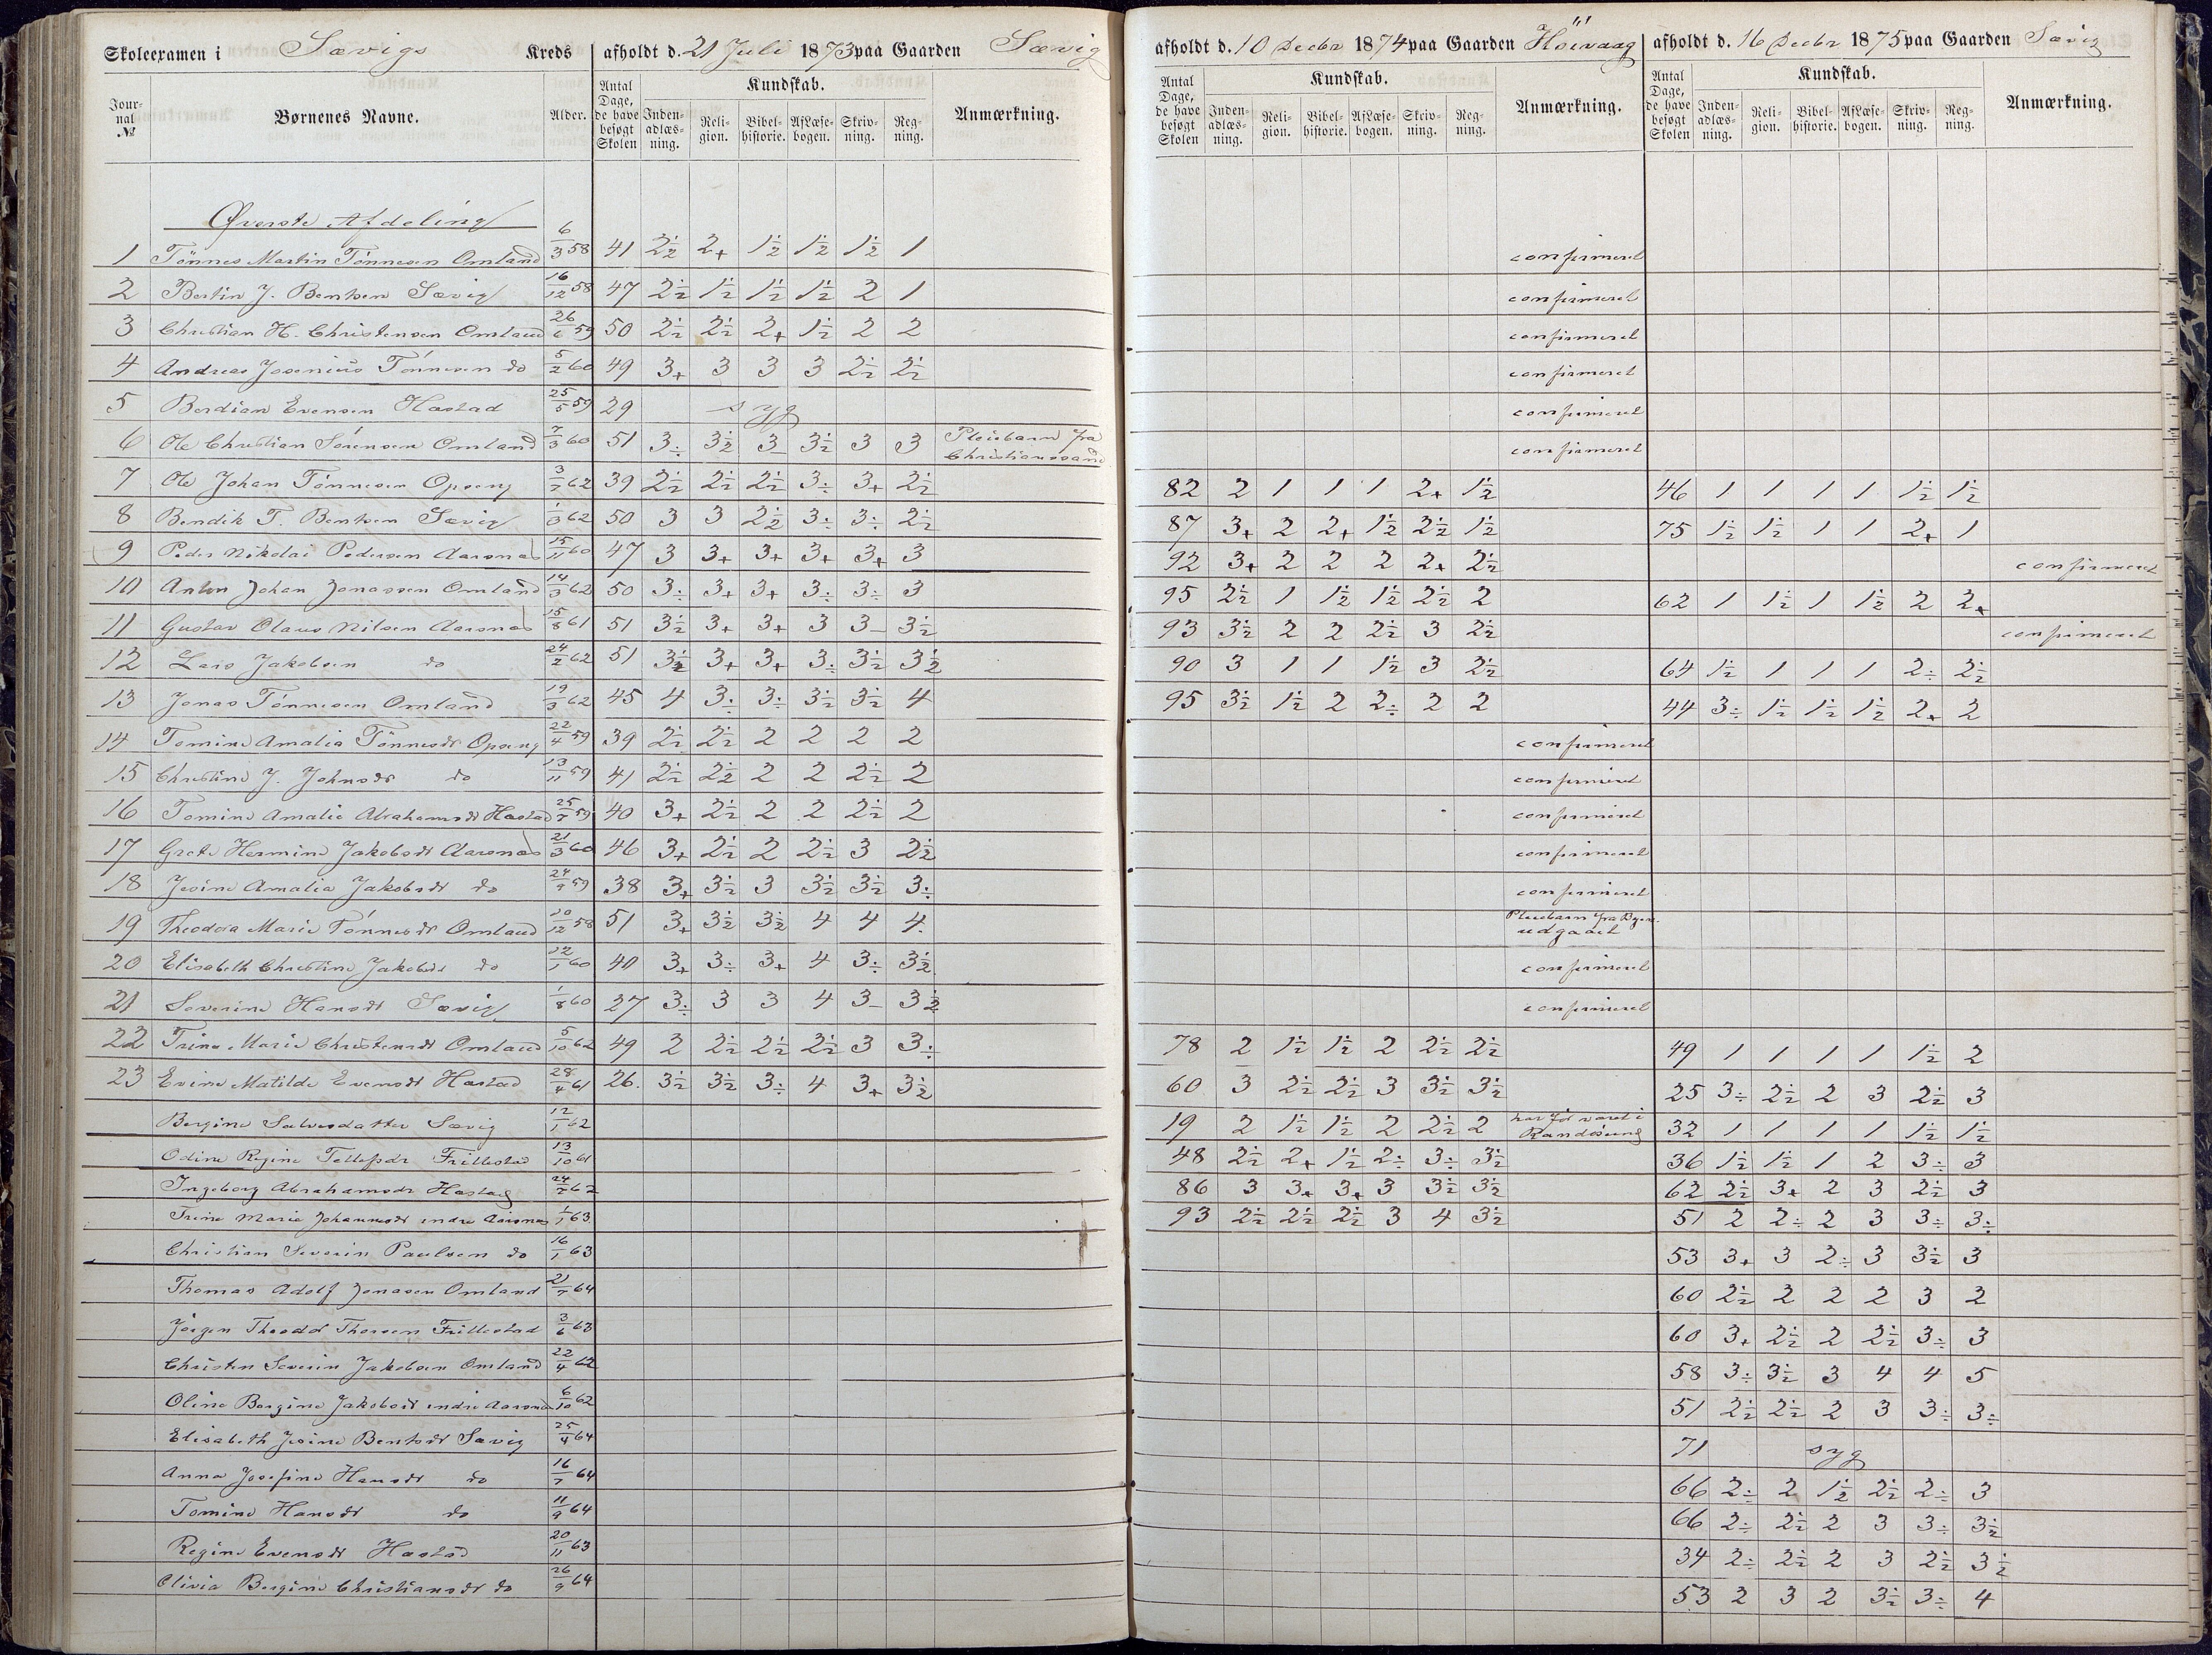 Skoleexamen i Sævigs Kreds afholdt d. 21 Juli 1873 paa Gaarden Sævig
Jour-nal № Børnenes Navne. Alder. Antal Dage, de have besøgt Skolen Kundskab. Inden-adlæs-ning. Reli-gion. Bibel-historie. Af Læse-bogen. Skriv-ning. Reg-ning. Anmærkning.
afholdt d. 10 Decbr 1874 paa Gaarden Höivaag
Antal Dage, de have besøgt Skolen Kundskab. Inden-adlæs-ning. Reli-gion. Bibel-historie. Af Læse-bogen. Skriv-ning. Reg-ning. Anmærkning.
afholdt d. 16 Decbr 1875 paa Gaarden Sævig
Antal Dage, de have besøgt Skolen Kundskab. Inden-adlæs-ning. Reli-gion. Bibel-historie. Af Læse-bogen. Skriv-ning. Reg-ning. Anmærkning.
Øverste Afdeling
1 Tönnes Martin Tönnesen Omland 6/3 58 41 2½ 2+ 1½ 1½ 1½ 1 confirmeret
2 Bertin J. Bentsen Sævig 16/12 58 47 2½ 1½ 1½ 1½ 2 1 confirmeret
3 Christian H. Christensen Omland 26/6 59 50 2½ 2½ 2+ 1½ 2 2 confirmeret
4 Andreas Josenius Tönnesen do 5/2 60 49 3+ 3 3 3 2½ 2½ confirmeret
5 Berdian Evensen Hæstad 25/5 59 29 syg confirmeret
6 Ole Christian Sörensen Omland 7/3 60 51 3÷ 3½ 3- 3½ 3 3 Pleiebarn fra Christianssand confirmeret
7 Ole Johan Tönnesen Opseng 3/7 62 39 2½ 2½ 2½ 3÷ 3+ 2½ 82 2 1 1 1 2+ 1½ 46 1 1 1 1 1½ 1½
8 Bendik T. Bentsen Sævig 1/3 62 50 3 3 2½ 3÷ 3÷ 2½ 87 3+ 2 2+ 1½ 2½ 1½ 75 1½ 1½ 1 1 2+ 1
9 Peder Nikolai Pedersen Aarsnes 15/11 60 47 3 3+ 3+ 3+ 3+ 3 92 3+ 2 2 2 2+ 2½ confirmeret
10 Anton Johan Jonassen Omland 14/3 62 50 3÷ 3+ 3+ 3÷ 3÷ 3 95 2½ 1 1½ 1½ 2½ 2 62 1 1½ 1 1½ 2 2+
11 Gustav Olaus Nilsen Aarsnes 15/8 61 51 3½ 3+ 3+ 3 3- 3½ 93 3½ 2 2 2½ 3 2½ confirmeret
12 Lars Jakobsen do 24/2 62 51 3½ 3+ 3+ 3÷ 3½ 3½ 90 3 1 1 1½ 3 2½ 64 1½ 1 1 1 2÷ 2½
13 Jonas Tönnesen Omland 19/3 62 45 4 3÷ 3÷ 3½ 3½ 4 95 3½ 1½ 2 2÷ 2 2 44 3÷ 1½ 1½ 1½ 2+ 2
14 Tomine Amalia Tönnesdr Opseng 22/4 59 39 2½ 2½ 2 2 2 2 confirmeret
15 Christine J. Johnsdr do 13/11 59 41 2½ 2½ 2 2 2½ 2 confirmeret
16 Tomine Amalie Abrahamsdr Hæstad 25/7 59 40 3+ 2½ 2 2 2½ 2 confirmeret
17 Grete Hermine Jakobsdr Aarsnes 21/3 60 46 3+ 2½ 2 2½ 3 2½ confirmeret
18 Jesine Amalia Jakobsdr do 24/9 59 38 3+ 3½ 3 3½ 3½ 3÷ confirmeret
19 Theodora Marie Tönnesdr Omland 20/12 58 51 3+ 3½ 3½ 4 4 4 Pleiebarn fra Byen. udgaaet
20 Elisabeth Christine Jakobsdr do 12/1 60 40 3+ 3÷ 3+ 4 3÷ 3½ confirmeret
21 Severine Hansdr Sævig 1/8 60 27 3÷ 3 3 4 3- 3½ confirmeret
22 Trine Marie Christensdr Omland 5/10 62 49 2 2½ 2½ 2½ 3 3÷ 78 2 1½ 1½ 2 2½ 2½ 49 1 1 1 1 1½ 2
23 Evine Matilde Evensdr Hæstad 28/4 61 26. 3½ 3½ 3÷ 4 3+ 3½ 60 3 2½ 2½ 3 3½ 3½ 25 3÷ 2½ 2 3 2½ 3
Bergine Salvesdatter Sævig 12/1 62 19 2 1½ 1½ 2 2½ 2 har för været i Randösund 32 1 1 1 1 1½ 1½
Odine Regine Tellefsdr Frillestad 13/10 61 48 2½ 2+ 1½ 2÷ 3÷ 3½ 36 1½ 1½ 1 2 3÷ 3
Ingeborg Abrahamsdr Hæstad 24/7 62 86 3 3+ 3+ 3 3½ 3½ 62 2½ 3+ 2 3 2½ 3
Trine Marie Johannesdr indre Aarsnes 1/1 63 93 2½ 2½ 2½ 3 4 3½ 51 2 2÷ 2 3 3÷ 3÷
Christian Severin Paulsen do 16/1 63 53 3+ 3 2÷ 3 3½ 3
Thomas Adolf Jonasen Omland 21/7 64 60 2½ 2 2 2 3 2
Jörgen Theodor Thorsen Frillestad 3/6 63 60 3+ 2½ 2 2½ 3÷ 3
Christen Severin Jakobsen Omland 22/4 62 58 3÷ 3½ 3 4 4 5
Oline Bergine Jakobsdr indre Aarsnes 6/10 62 51 2½ 2½ 2 3 3÷ 3÷
Elisabeth Jesine Bentsdr Sævig 25/4 64 71 syg
Anna Josefine Hansdr do 16/7 64 66 2÷ 2 1½ 2½ 2÷ 3
Tomine Hansdr do 11/9 64 66 2÷ 2½ 2 3 3÷ 3½
Regine Evensdr Hæstad 20/11 63 34 2÷ 2½ 2 3 2½ 3½
Olivia Bergine Christiansdr do 26/9 64 53 2 3 2 3½ 3÷ 4